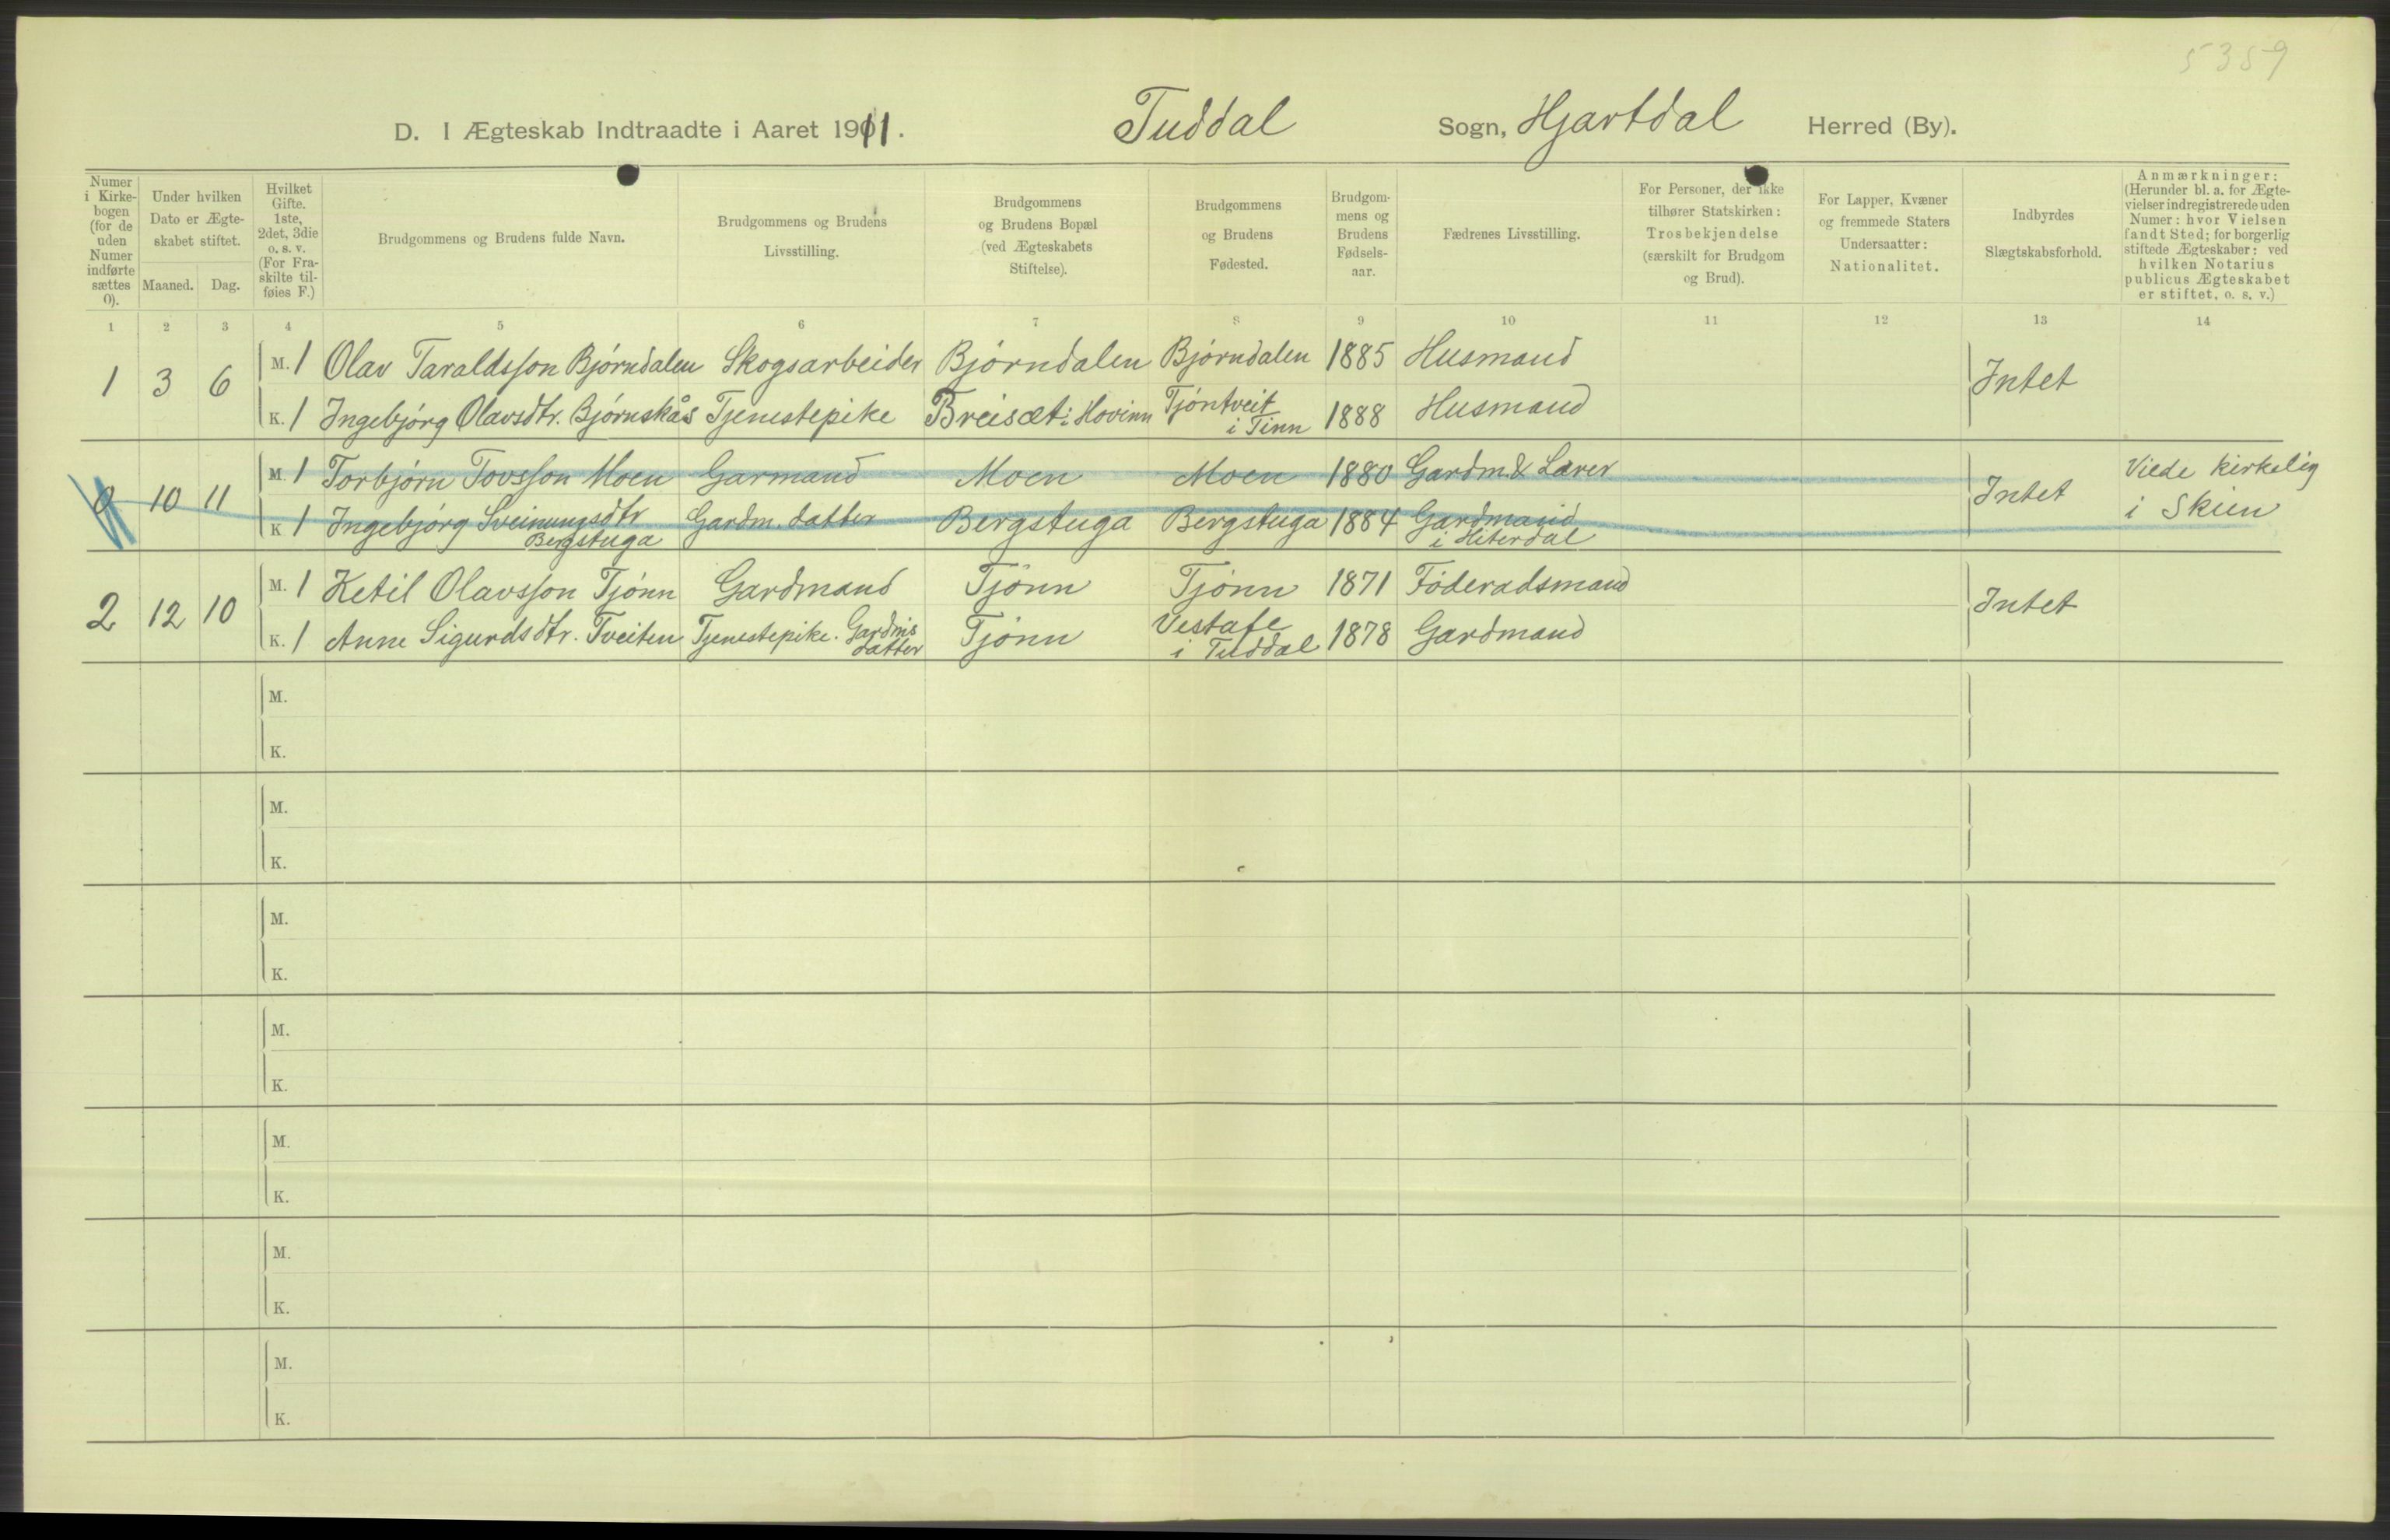 5359
D. I Ægteskab Indtraadte i Aaret 1911. Tuddal Sogn, Hjartdal Herred (By).
Numer i Kirke-bogen (for de uden Numer indførte sættes 0).
Under hvilken Dato er Ægte-skabet stiftet.
Maaned. Dag.
Hvilket Gifte. 1ste, 2det, 3die o. s. v. (For Fra-skilte til-føies F.)
Brudgommens og Brudens fulde Navn.
Brudgommens og Brudens Livsstilling.
Brudgommens og Brudens Bopæl (ved Ægteskabets Stiftelse).
Brudgommens og Brudens Fødested.
Brudgom-mens og Brudens Fødsels-aar.
Fædrenes Livsstilling.
For Personer, der ikke tilhører Statskirken: Trosbekjendelse (særskilt for Brudgom og Brud).
For Lapper, Kvæner og fremmede Staters Undersaatter: Nationalitet.
Indbyrdes Slægtskabsforhold.
Anmærkninger: (Herunder bl. a. for Ægte-vielser indregistrerede uden Numer: hvor Vielsen fandt Sted; for borgerlig stiftede Ægteskaber: ved hvilken Notarius publicus Ægteskabet er stiftet, o. s. v.)
1 2 3 4 5 6 7 8 9 10 11 12 13 14
1 3 6 M. 1 Olav Taraldsson Bjørndalen Skogsarbeider Bjørndalen Bjørndalen 1885 Husmand Intet
K. 1 Ingebjørg Olavsdtr. Bjørnskås Tjenestepike Breisæt i Hovinn Tjøntveit i Tinn 1888 Husmand
0 10 11 M. 1 Torbjørn Tovsson Moen Garmand Moen Moen 1880 Gardm. & Lærer Intet Viede kirkelig i Skien
K 1 Ingebjørg Sveinungsdtr Bergstuga Gardm. datter Bergstuga Bergstuga 1884 Gardmand i Hiterdal
2 12 10 M. 1 Ketil Olavsson Tjønn Gardmand Tjønn Tjønn 1871 Føderadsmand Intet
K. 1 Anne Sigurdsdtr. Tveiten Tjenestepike. Gardms datter Tjønn Vestafe i Tuddal 1878 Gardmand
M.
K.
M.
K.
M.
K.
M.
K.
M.
K.
M.
K.
M.
K.